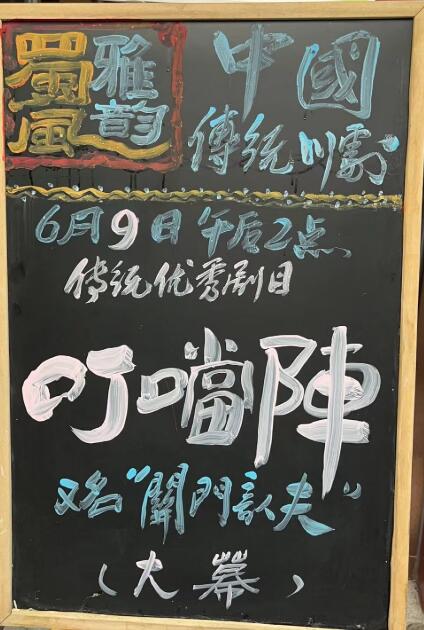 蜀風
雅韵
中國
傳統川劇
6月9日午后2点
传统优秀剧目
叮噹陣
又名“關門认夫”
（大幕）